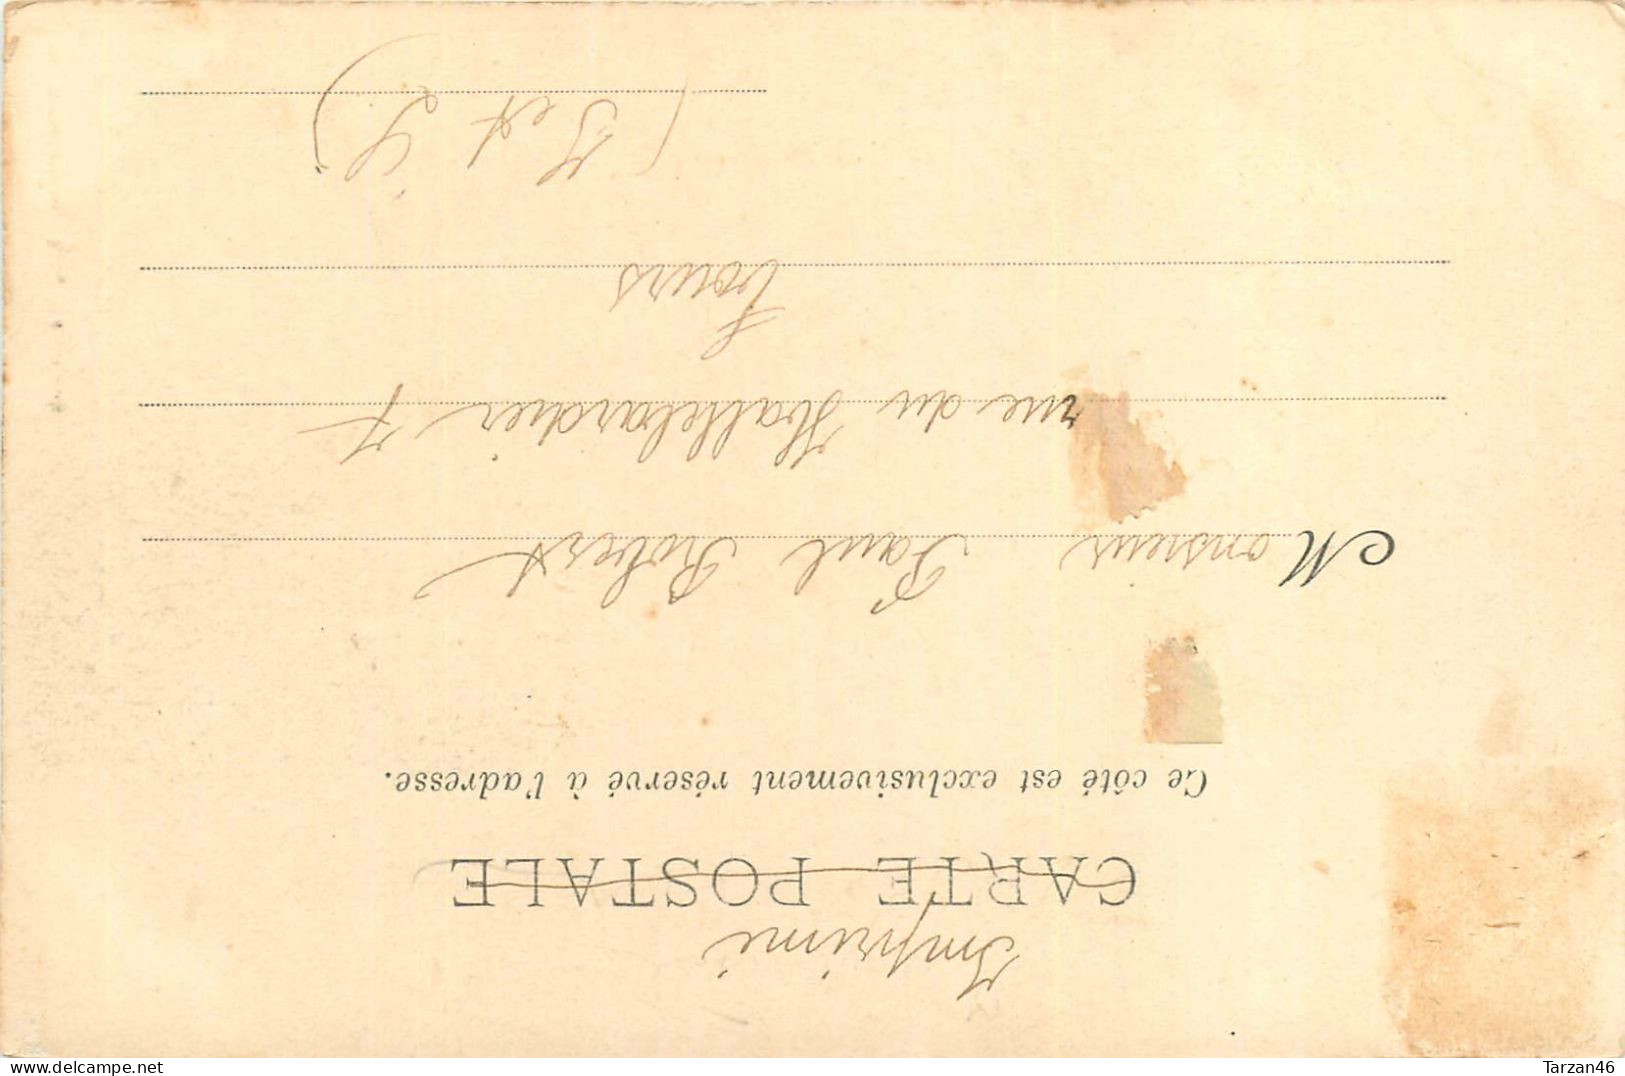 Imprimé
CARTE POSTALE
Ce côté est exclusivement réservé à l'adresse.
Monsieur Paul Robert
rue du Hallebardier 7
Tours
(I et L)
www.delcampe.net
Tarzan46